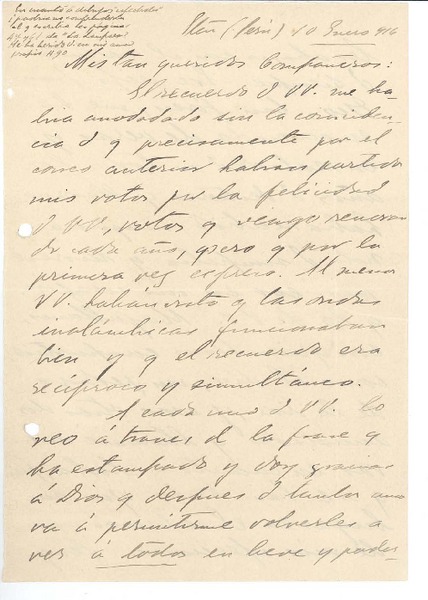 En cuanto á dibujos
Etén (Perú) 10 Enero 916
Mis tan queridos Compañeros:
El recuerdo d VV. me ha-
bria anodadado sin la coinciden-
cia d q precisamente por el
correo anterior habian partido
mis votos por la felicidad
d VV, votos q vengo renovan
do cada año, pero q por la
primera vez expreso. Al menos
VV. habrán visto q las ondas
inalámbricas funcionaban
bien y q el recuerdo era
recíproco y simultáneo.
A cada uno d VV. lo
veo á traves d la frase q
ha estampado y doy gracias
á Dios q despues d tanto ano
va á permitirme volverles a
ver á todos en breve y poder